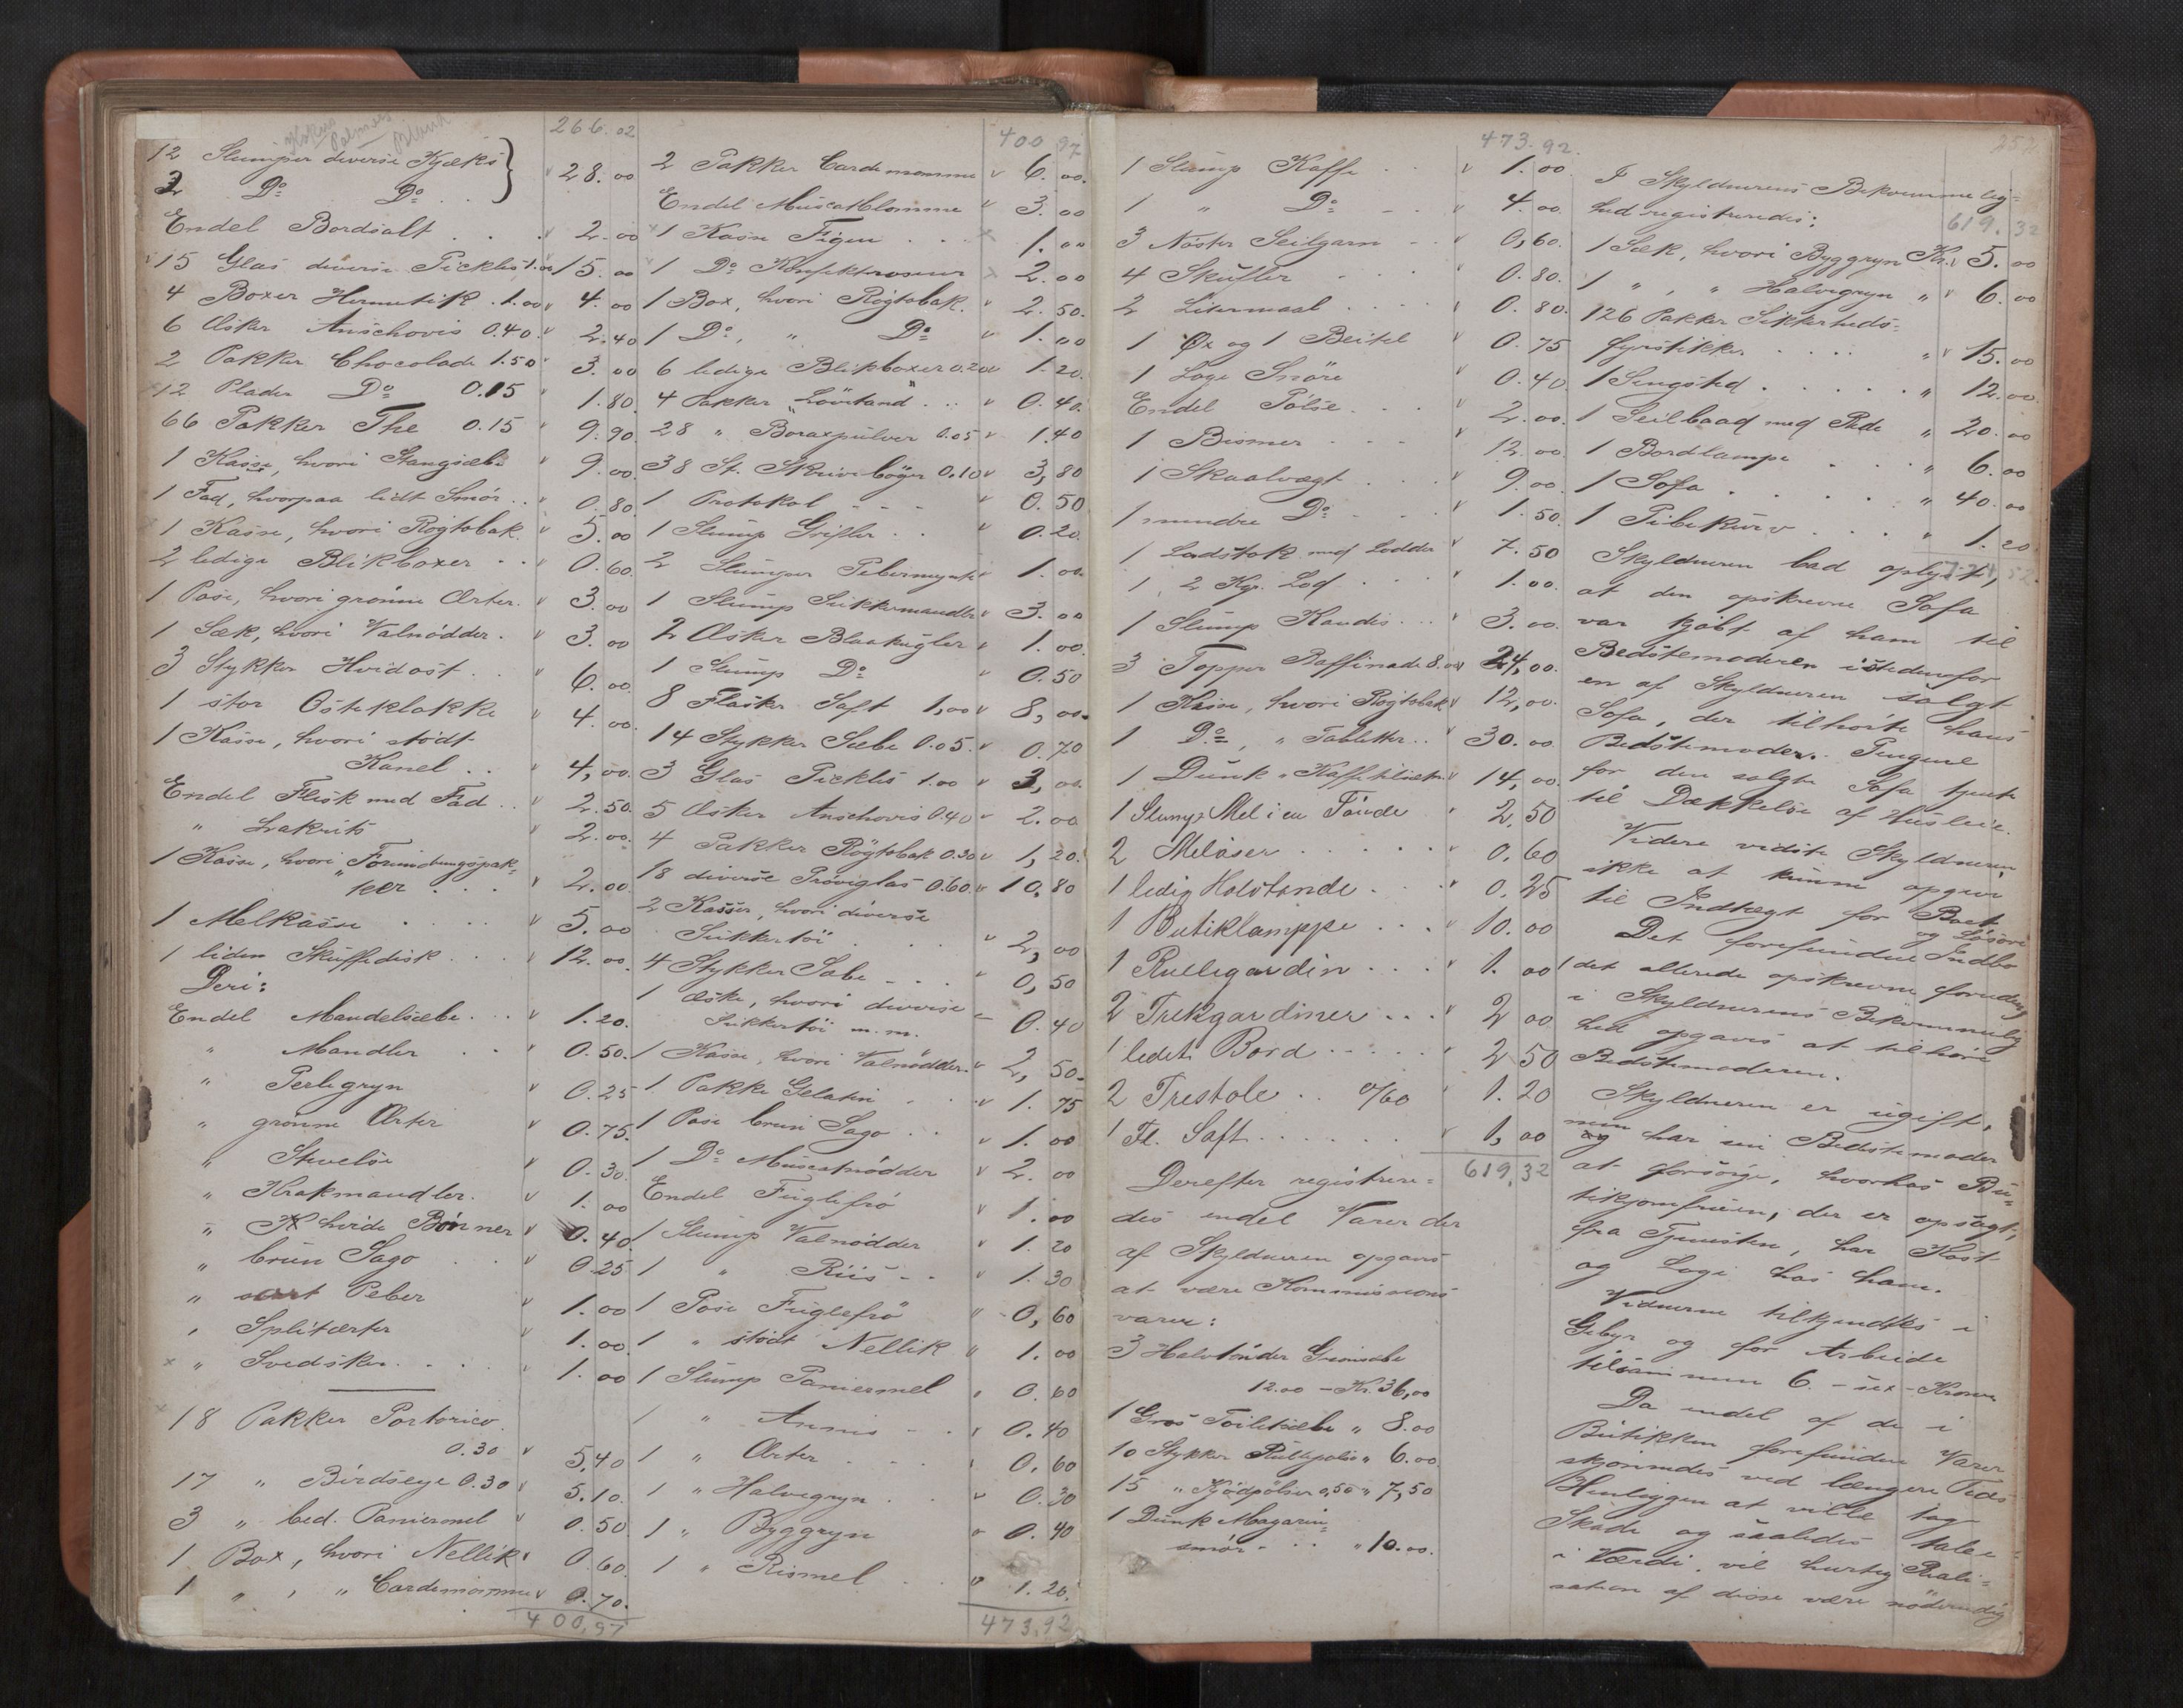 266.02
12 Slumper diverse Kjæks
2 Do Do . } " 28.00
Endel Bordsalt . . . " 2.00
15 Glas diverse Pickles 1.00 15.00
4 Boxer Hermetik . 1.00 " 4.00
6 Æsker Anschovis 0.40 " 2.40
2 Pakker Chocolade 1.50 " 3.00
12 Plader Do 0.15 " 1.80
66 Pakker The 0.15 " 9.90
1 Kasse, hvori Stangsæbe " 9.00
1 Fad, hvorpaa lidt Smör . . " 0.80
1 Kasse, hvori Rögtobak " 5.00
2 ledige Blikboxer . . " 0.60
1 Pose, hvori grönne Ærter . " 3.00
1 Sæk, hvori Valnödder . " 3.00
3 Stykker Hvidost . . " 6.00
1 stor Osteklokke " 4.00
1 Kasse, hvori stödt
Kanel . . " 4,00
Endel Flesk med Fad . . " 2.50
" Lakrits " 2.00
1 Kasse, hvori Forundringspak-
ker . . . " 2.00
1 Melkasse . . . . " 5.00
1 liden Skuffedisk . . . " 12.00
Deri:
Endel Mandelsæbe . . " 1.20
" Mandler . . " 0.50
" Perlegryn " 0.25
" grönne Ærter " 0.75
" Stivelse " 0.30
" Krakmandler . " 1.00
" hvide Bönner " 0.40
" brun Sago . . " 0.25
" sort Peber " 1.00
" Splitærter " 1.00
" Svedsker . . . . " 1.00
18 Pakker Portorico
0.30 " 5,40
17 " Birdseye 0.30 " 5.10
3 " bed. Paniermel " 0.50
1 Box, hvori Nellik " 0.60
1 " , " Cardemomme " 0.70
400,97
400 97
2 Pakker Cardemomme " 6.00
Endel Muscatblomme " 3.00
1 Kasse Figen . . . 1.00
1 Do Konfektrosiner 2.00
1 Box, hvori Rögtobak . " 2.50
1 Do, " Do " 1.00
6 ledige Blikboxer 0.20 " 1.20
4 Pakker "Lövetand" . . " 0.40
28 " Boraxpulver 0.05 " 1.40
38 St. Skriveböger 0.10 " 3,80
1 Protokol . . . " 0.50
1 Slump Grifler . . " 0.20
2 Slumper Pebermynte " 1.00
1 Slump Sukkermandler " 3.00
2 Æsker Blaakugler " 1.00
1 Slump Do " 0.50
8 Flasker Saft 1,00 " 8,00
14 Stykker Sæbe 0.05 . " 0.70
3 Glas Pickles 1.00 " 3,00
5 Æsker Anschovis 0.40 " 2.00
4 Pakker Rögtobak 0.30 " 1,20
18 diverse Pröveglas 0.60 " 10,80
2 Kasser, hvori diverse
Sukkertöi . . . " 2,00
4 Stykker Sæbe . . . " 0,50
1 Æske, hvori diverse
Sukkertöi m.m. " 0.40
1 Kasse, hvori Valnödder " 2,50
1 Pakke Gelatin . . " 1.75
1 Pose brun Sago . . " 1.00
1 Do Muscatnödder " 2.00
Endel Fuglefrö " 1.00
1 Slump Valnödder " 1.20
1 " Riis . . " 1.30
1 Pose Fuglefrö " 0,60
1 " stödt Nellik " 1.00
1 Slump Paniermel " 0.60
1 " Annis . . " 0.40
1 " Ærter . . . . " 0.60
1 " Halvegryn . . " 0.30
1 " Byggryn " 0.40
1 " Rismel . . " 1.20
473,92
473.92
1 Slump Kaffe . . " 1.00
1 " Do . . " 4.00
3 Nöster Seilgarn . . " 0,60
4 Skufler . . . " 0.80
2 Litermaal . . . . " 0.80
1 Öx og 1 Beitel " 0.75
1 Loge Snöre " 0.40
Endel Pölse . . . " 2.00
1 Bismer . . . " 12.00
1 Skaalvægt . . . " 9.00
1 mindre Do . . . " 1.50
1 Lodstok med Lodder " 7.50
1 2 Kgr. Lod . . . " 1.00
1 Slump Kandis . . . " 3.00
3 Topper Raffinade 8.00 " 24,00
1 Kasse, hvori Rögtobak " 12,00
1 Do, " Tabletter . . " 30.00
1 Dunk " Kaffetilsætn. " 14,00
1 Slump Mel i en Tönde " 2,50
2 Melöser . . . . . " 0,60
1 ledig Halvtönde . . . " 0.25
1 Butiklamppe . . . " 10.00
1 Rullegardin . . . " 1.00
2 Trekgardiner . . . " 2 00
1 ledet Bord . . . . . " 2 50
2 Trestole . . 0/60 " 1.20
1 Fl. Saft . . . . . . " 1,00
619,32
Derefter registrere-
des endel Varer der
af Skyldneren opgaves
at være Kommissions
varer:
3 Halvtönder Grönsæbe
12.00 - Kr. 36,00
1 Gros Toiletsæbe " 8.00
10 Stykker Rullepölse " 6.00
15 " Kjödpölser 0,50 " 7,50
1 Dunk Magarin-
smör . . . " 10.00
252
I Skyldnerens Bekvemmelig-
hed registreredes:
619.32
1 Sæk, hvori Byggryn Kr. 5.00
1 " , " Halvegryn " 6.00
126 Pakker Sikkerheds-
fyrstikker . . . . " 15.00
1 Sengsted . . . . . " 12.00
1 Seilbaad med Rede " 20.00
1 Bordlampe . . . " 6.00
1 Sofa . . . . . " 40.00
1 Pibekurv . . . . " 1.20
Skyldneren bad oplyst,
at den opskrevne Sofa
var kjöbt af ham til
Bedstemoderen istedenfor
en af Skyldneren solgt
Sofa, der tilhörte hans
Bedstemoder. Pengene
for den solgte Sofa tjente
til Dækkelse af Husleie.
Videre vidste Skyldneren
ikke at kunne opgive
til Indtægt for Boet.
Det forefundne Indbo
og Lösöre
det allerede opskrevne foruden
i Skyldnerens Bekvemmelig
hed opgaves at tilhöre
Bedstemoderen.
Skyldneren er ugift,
og har sin Bedstemoder
at forsörge, hvorhos Bu-
tikjomfruen, der er opsagt,
fra Tjenesten, har Kost
og Logi hos ham.
Vidnerne tilkjendtes i
Gebyr og for Arbeide
tilsammen 6. - sex - Kroner
Da endel af de i
Butikken forefundne Varer
skjönnedes ved længere Tids
Henliggen at ville tage
Skade og saaledes tabe
i Værdi, vil hurtig Reali-
sation af disse være nödvendig